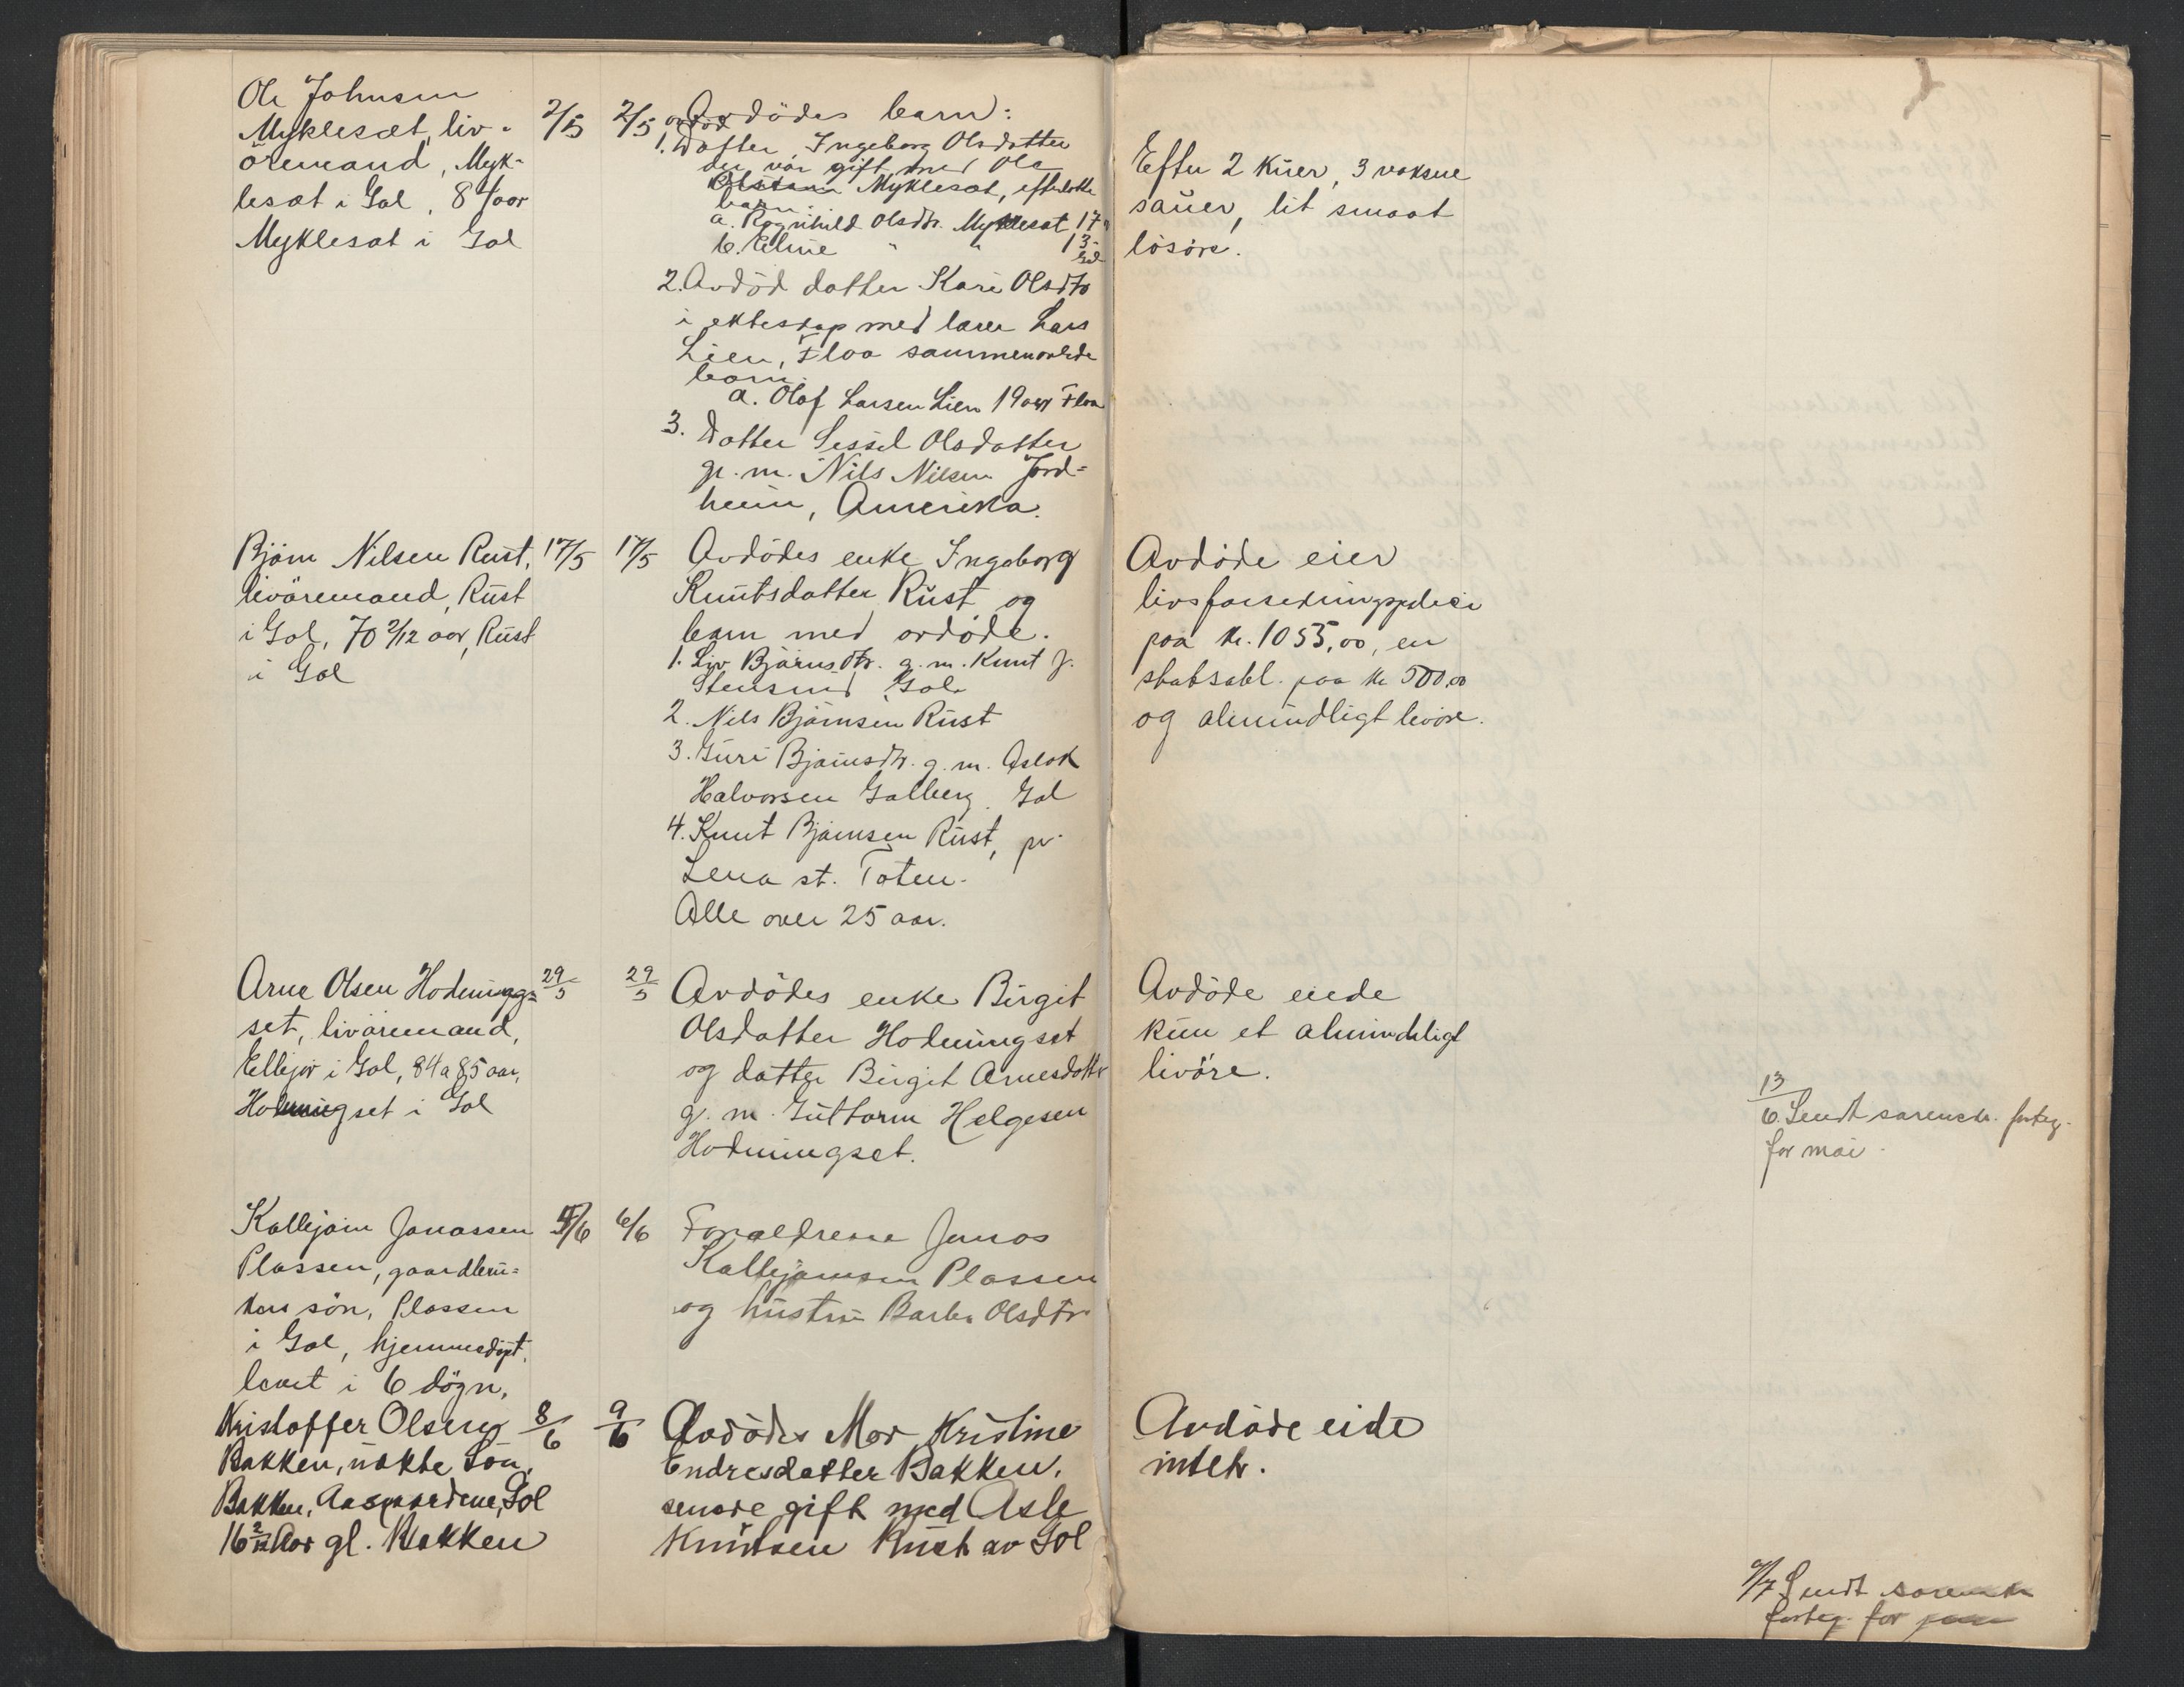 Ole Johnsen
Myklesæt, liv-
öremand, Myk-
lesæt i Gol, 84 aar
Myklesæt i Gol
2/5
2/5
Avdödes barn:
avdöd
1. Datter Ingeborg Olsdatter
der var gift med Ola
Myklesæt, efterlatte
barn:
a. Ragnhild Olsdtr. Myklesæt 17
b. Eline " " 13
Gol
2. Avdöd datter Kari Olsdtr
i ekteskap med lærer Lars
Lien, Flaa sammenavlede
barn:
a. Olaf Larsen Lien 19 aar Flaa
3. Datter Sissel Olsdatter
g. m. Nils Nilsen Jord-
heim, Amerika.
Efter 2 kuer, 3 voksne
sauer, lit smaat
lösöre.
Björn Nilsen Rust,
livöremand, Rust
i Gol, 70 2/12 aar, Rust
i Gol
17/5
17/5
Avdödes enke Ingeborg
Knutsdatter Rust og
barn med avdöde.
1. Liv Björnsdtr. g. m. Knut J.
Stensrud Gol.
2. Nils Björnsen Rust
3. Guri Björnsdtr. g. m. Aslak
Halvorsen Golberg. Gol
4. Knut Björnsen Rust, pr.
Lena st. Toten.
Alle over 25 aar.
Avdöde eier
livsforsikringspolice
paa kr. 1055,00, en
statsobl. paa kr 500,00
og almindligt livöre.
Arne Olsen Hodnungg-
set, livöremand,
Ellejor i Gol, 84 a 85 aar,
Hodnungset i Gol
29/5
29/5
Avdödes enke Birgit
Olsdatter Hodnungset
og datter Birgit Arnesdatter
g. m. Guttorm Helgesen
Hodnungset.
Avdöde eiede
kun et almindeligt
livöre.
13/6. Sendt sorenskr. forteg.
for mai.
Kallejörn Jonassen
Plassen, gaardbru-
kers sön, Plassen
i Gol, hjemmedöpt,
levet i 6 dögn,
4/6
6/6
Foreldrene Jonas
Kallejörnsen Plassen
og hustru Barbro Olsdtr.
Kristoffer Olsen
Bakken, uækte Sön,
Bakken, Aasgaardene, Gol
16 2/12 Aar gl. Bakken
8/6
9/6
Avdödes Mor Kristine
Endresdatter Bakken,
senere gift med Asle
Knutsen Rust av Gol
Avdöde eide
intet.
Sendt sorenskr
forteg. for juni